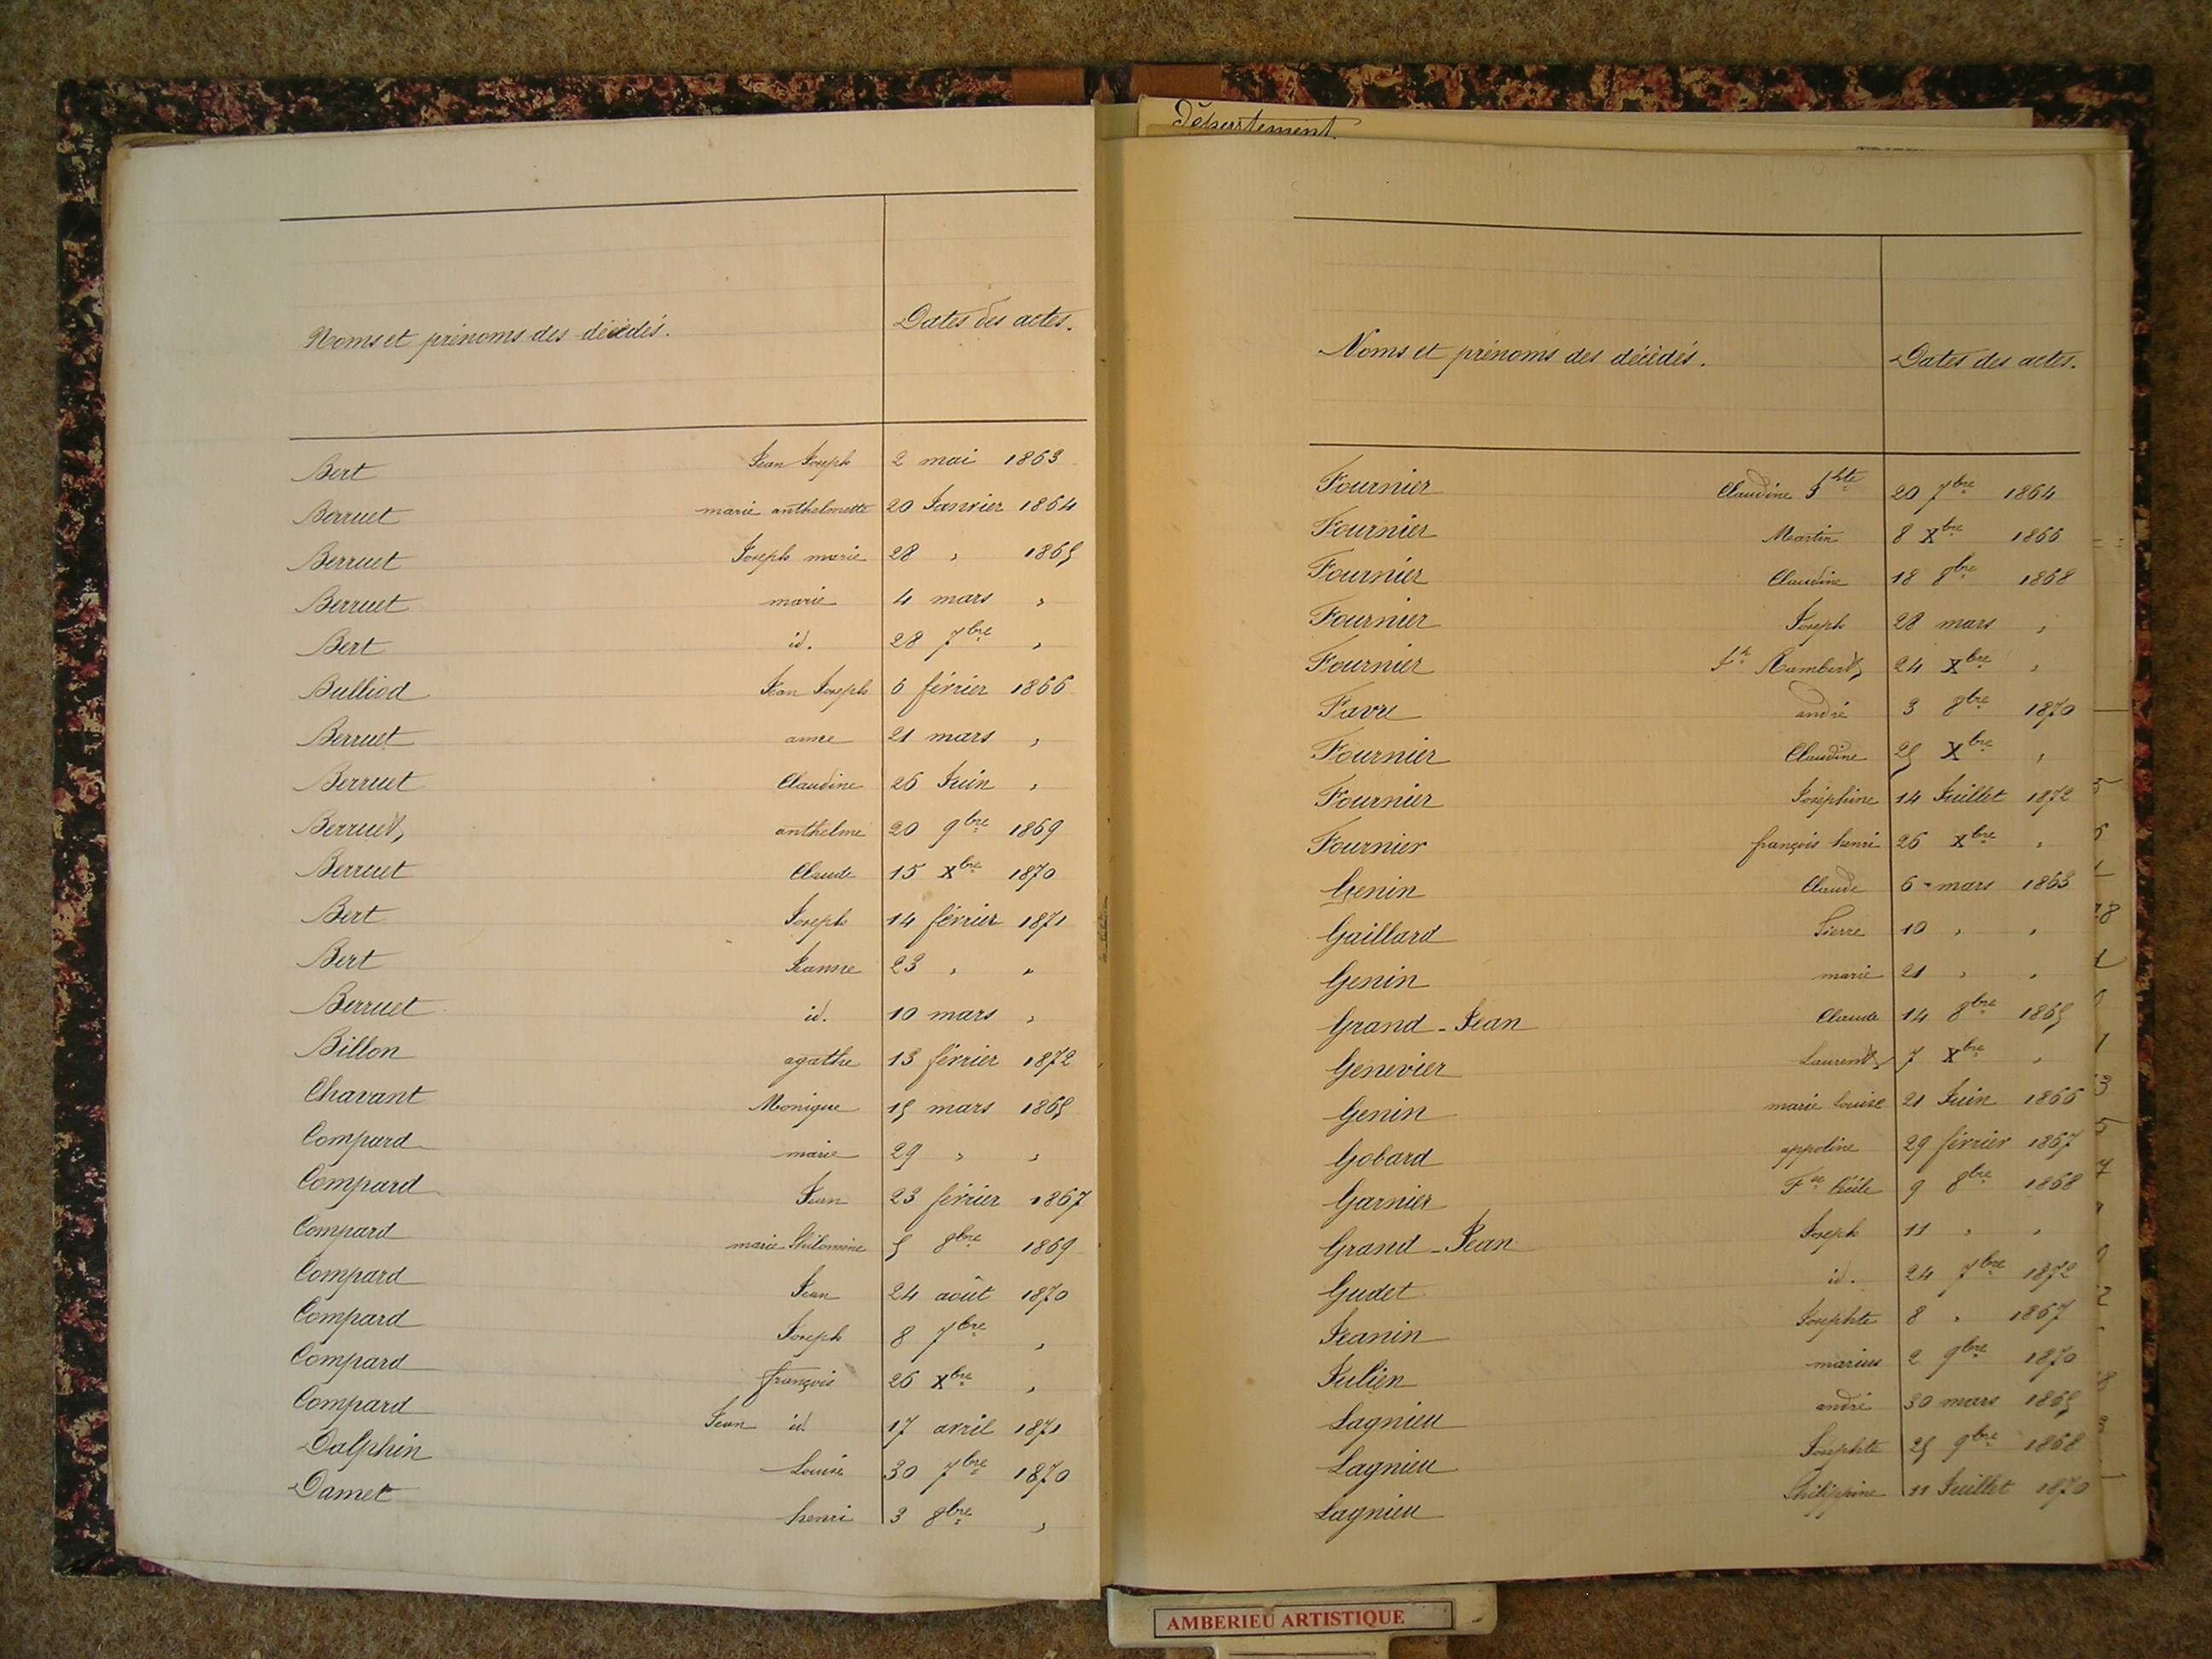 Noms et prénoms des décédés. Dates des actes.
Bert Jean Joseph 2 mai 1863
Berruet marie anthelmette 20 Janvier 1864
Berruet Joseph marie 28 " 1865
Berruet marie 4 mars "
Bert id. 28 7bre "
Bulliod Jean Joseph 6 février 1866
Berruet anne 21 mars "
Berruet Claudine 26 Juin "
Berruet, anthelme 20 9bre 1869
Berruet Claude 15 Xbre 1870
Bert Joseph 14 février 1871
Bert Jeanne 23 " "
Berruet id. 10 mars "
Billon agathe 13 février 1872
Chavant Monique 15 mars 1865
Compard marie 29 " "
Compard Jean 23 février 1867
Compard marie Philomine 5 8bre 1869
Compard Jean 24 août 1870
Compard Joseph 8 7bre "
Compard françois 26 Xbre "
Compard Jean id. 17 avril 1871
Dalphin Louise 30 7bre 1870
Damet henri 3 8bre "
Département.
Noms et prénoms des décédés. Dates des actes.
Fournier Claudine Jhte 20 7bre 1864
Fournier Martin 8 Xbre 1866
Fournier Claudine 18 8bre 1868
Fournier Joseph 28 mars "
Fournier Jh Rambert, 24 Xbre "
Favre andré 3 8bre 1870
Fournier Claudine 25 Xbre "
Fournier Joséphine 14 Juillet 1872
Fournier françois henri 26 Xbre "
Genin Claude 6 mars 1863
Gaillard Pierre 10 " "
Genin marie 21 " "
Grand-Jean Claude 14 8bre 1865
Genevier Laurent, 7 Xbre "
Genin marie Louise 21 Juin 1866
Gobard appoline 29 février 1867
Garnier Fse Cécile 9 8bre 1868
Grand-Jean Joseph 11 " "
Gudet id. 24 7bre 1872
Jeanin Josephte 8 " 1867
Julien marius 2 9bre 1870
Lagnieu andré 30 mars 1865
Lagnieu Josephte 25 9bre 1868
Lagnieu Philippine 11 Juillet 1870
AMBERIEU ARTISTIQUE